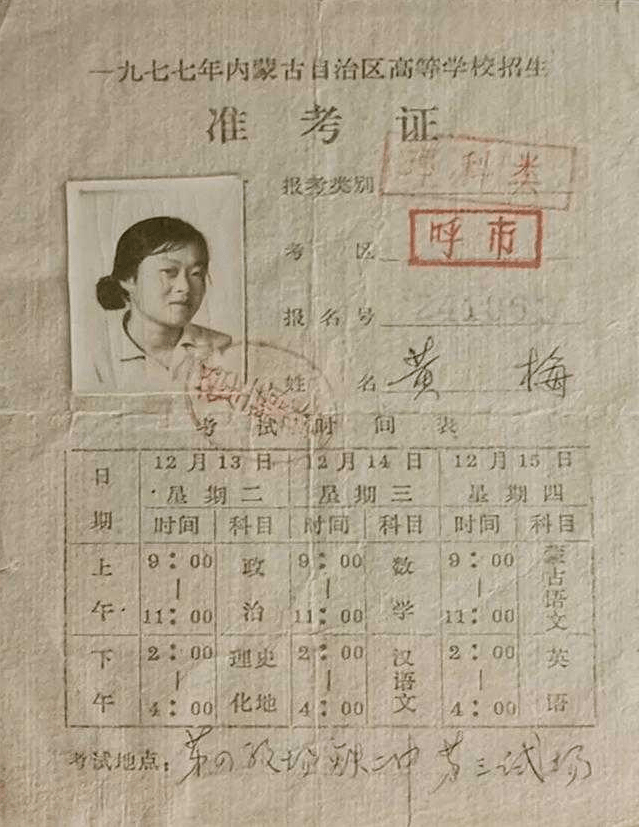 一九七七年内蒙古自治区高等学校招生
准考证
报考类别 理科类
考区 呼市
报名号
姓名 黄梅
考试时间表
日期 12月13日 12月14日 12月15日
星期二 星期三 星期四
时间 科目 时间 科目 时间 科目
上午 9:00|11:00 政治 9:00|11:00 数学 9:00|11:00 蒙古语文
下午 2:00|4:00 理化 史地 2:00|4:00 汉语文 2:00|4:00 英语
考试地点：第四考场铁二中第三试场